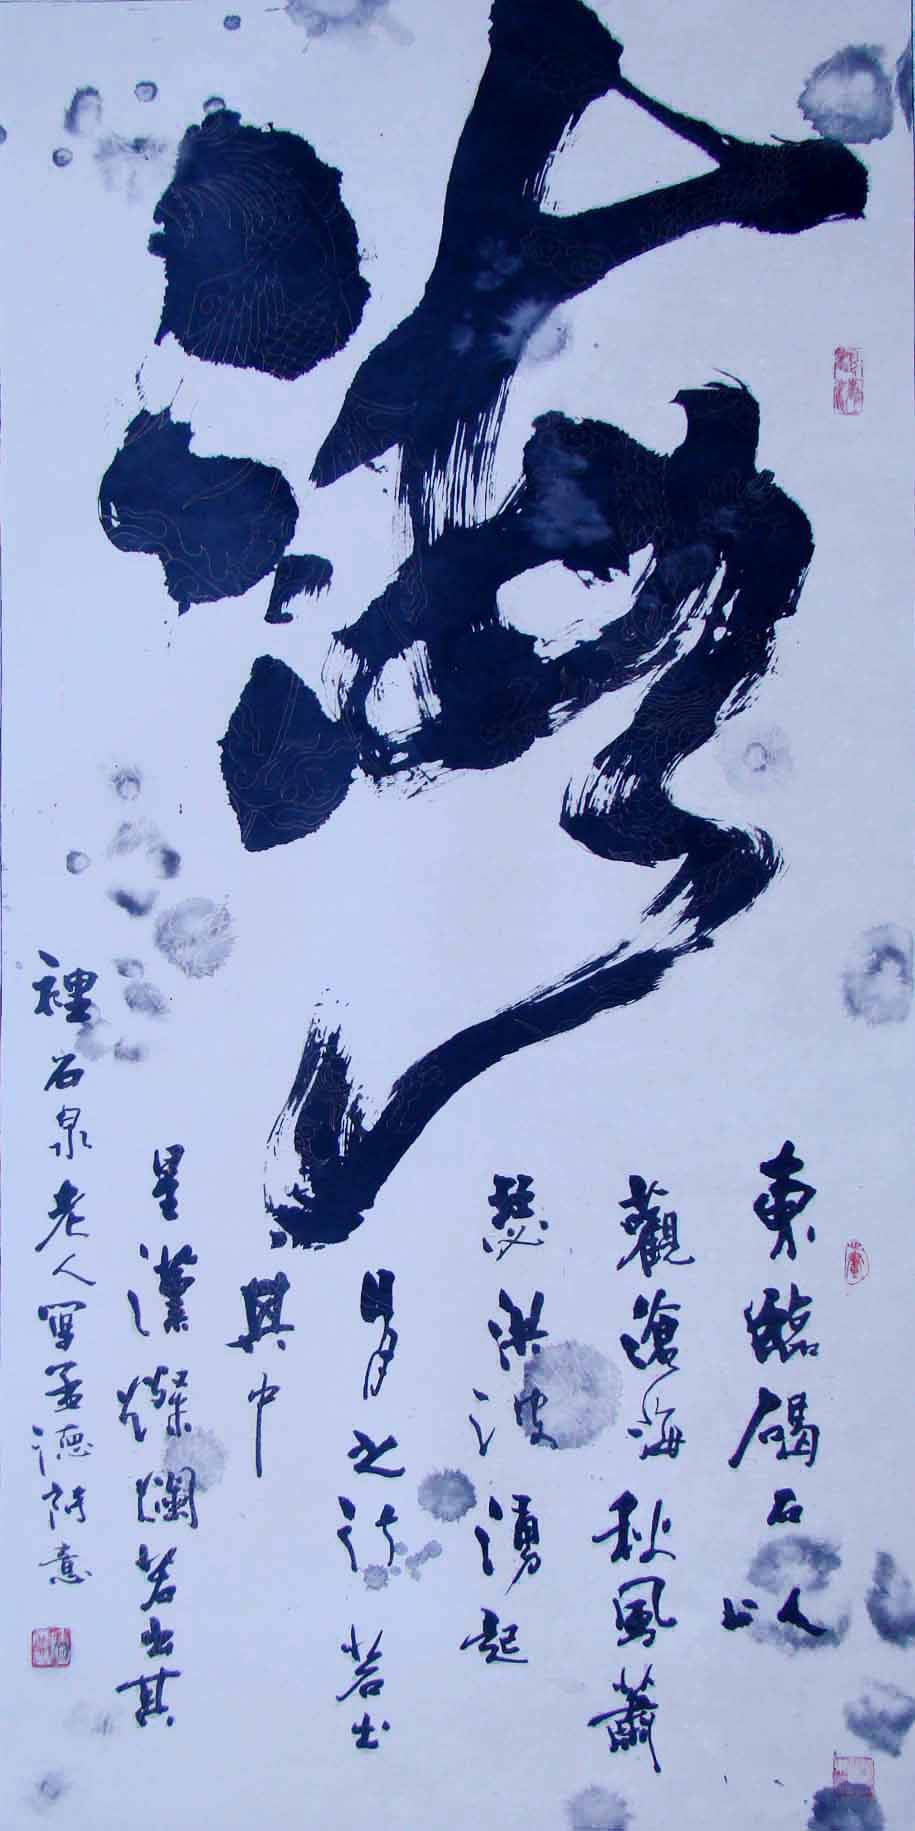 海
東臨碣石以
觀滄海秋風蕭
瑟洪波湧起
日月之行若出
其中
星漢燦爛若出其
裡石泉老人寫孟德詩意